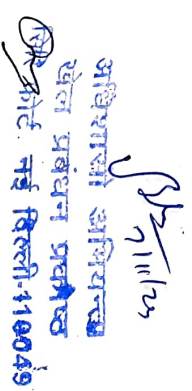 7/11/23
अधिशासी अभियन्ता
खेल प्रबंधन प्रकोष्ठ
सिरी फोर्ट नई दिल्ली-110049